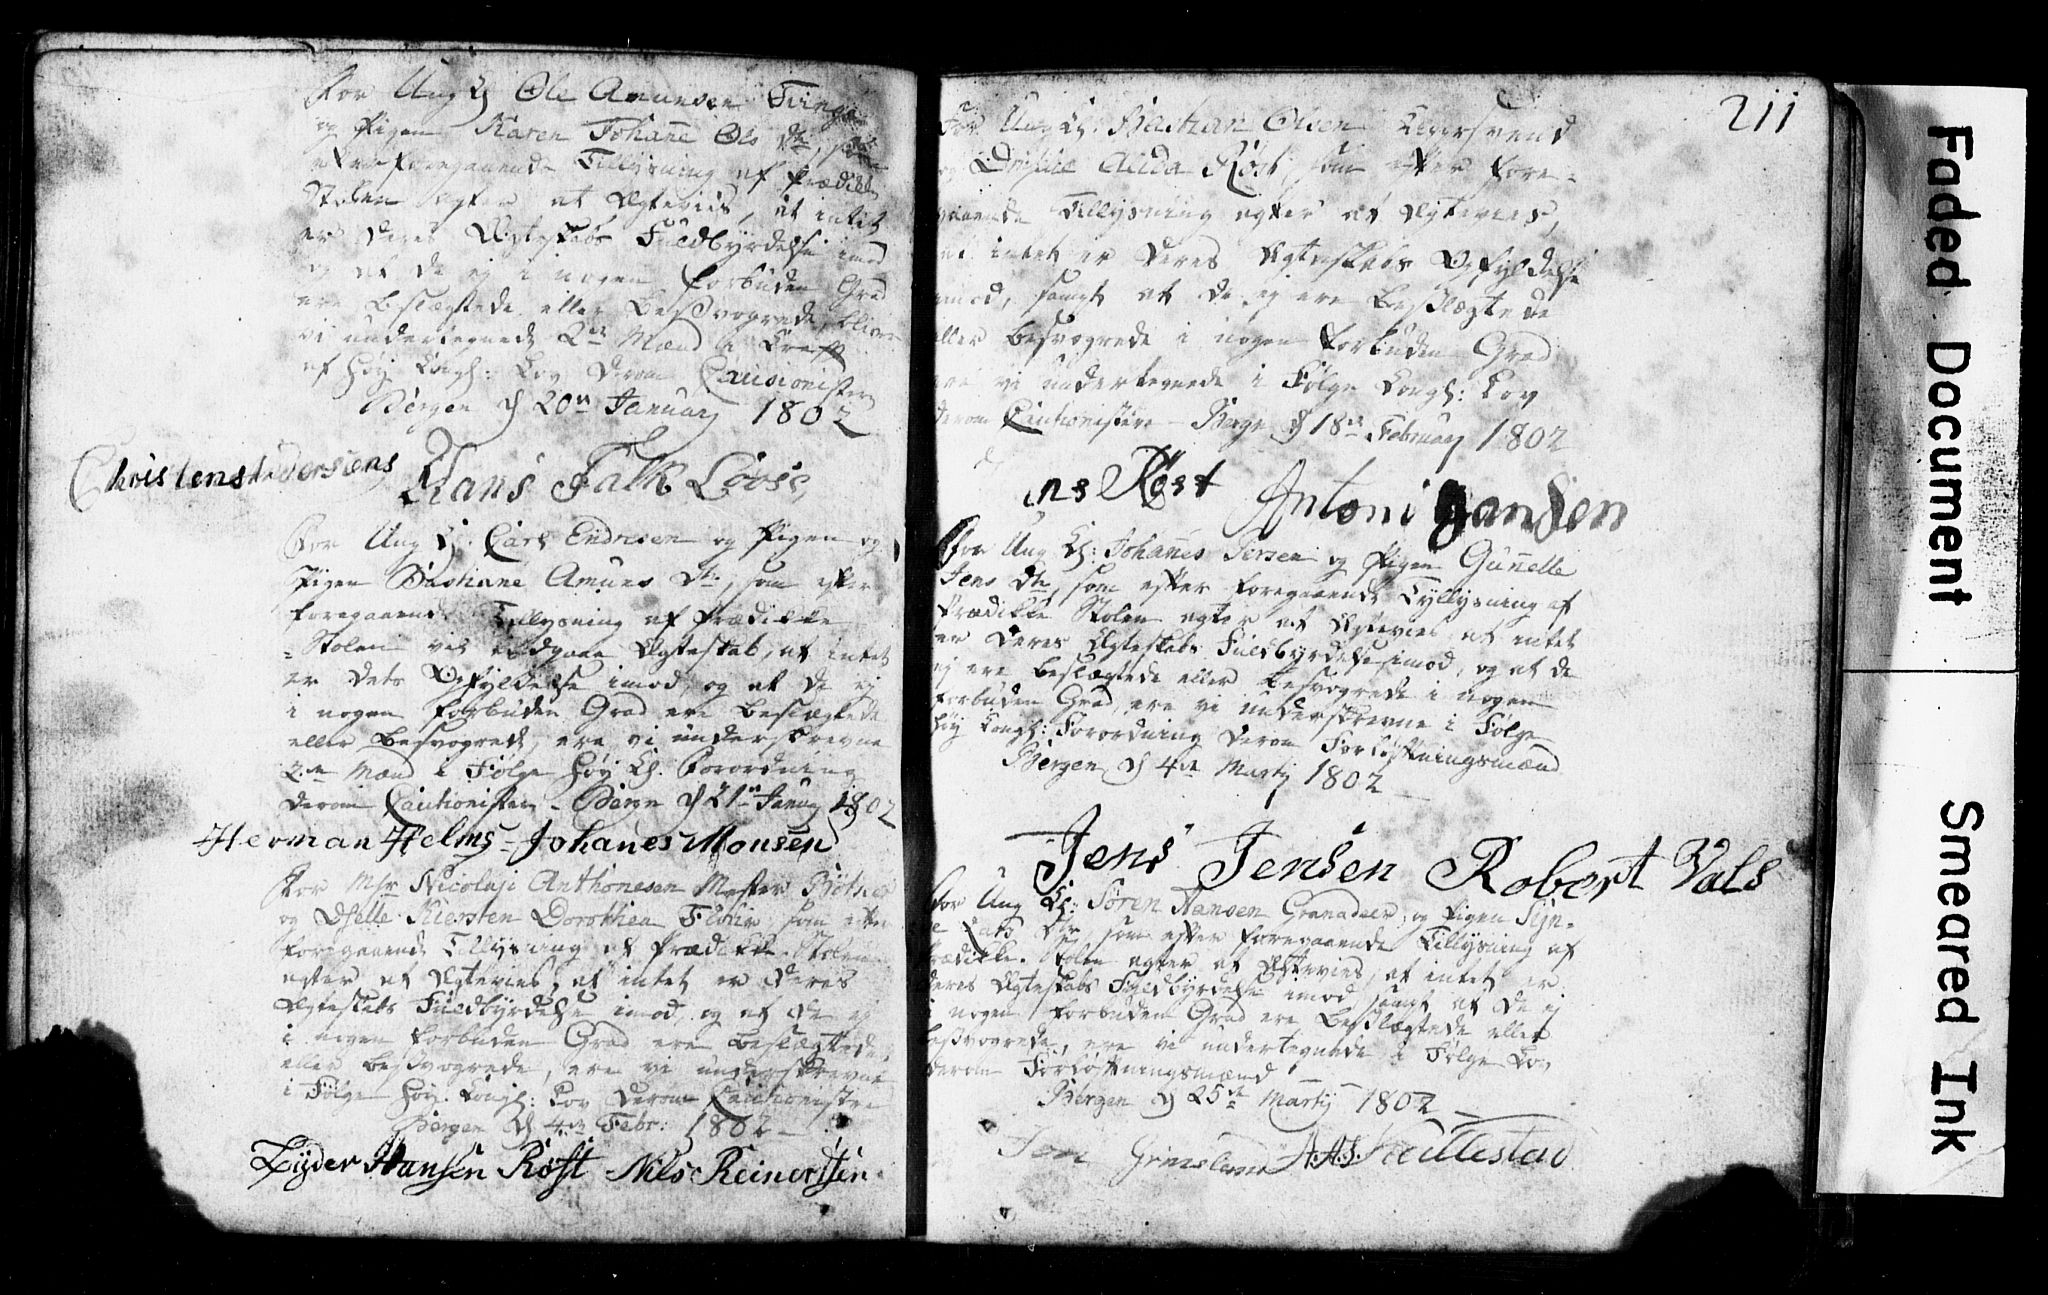 For Ung K Ole Amunsen
og Pigen Karen Johanne Ols Dtr, som
efter foregaaende Tillysning af Prædike
Stolen agter at Ægtevies, at intet
er deres Ægteskabs Fuldbyrdelse imod
og at de ej i nogen forbuden Grad
ere beslægtede eller besvogrede, bliver
vi undertegnede 2de Mænd i Kraft
af høy Kongl: Lov derom Cautionister
Bergen d 20de January 1802
Christen Andersens Hans Falk Looss
For Ung K. Carl Endresen og Pigen og
Pigen Bastiane Amuns Dtr, som efter
foregaaende Tillysning af Prædikke
Stolen vil indgaae Ægteskab, at intet
er dets Opfyldelse imod, og at de ej
i nogen forbuden Grad ere beslægtede
eller besvogrede, ere vi underskrevne
2de Mænd i Følge høy Kl. Forordning
derom Cautionister. Bergen d 21de Januay 1802
Herman Helms - Johanes Monsen
For Msr Nicolaji Anthonesen Mester
og Dselle Kiersten Dorothea som efter
foregaaende Tillysning af Prædikke Stolen
agter at Ægtevies, at intet er deres
Ægteskabs Fuldbyrdelse imod, og at de ej
i nogen forbuden Grad ere beslægtede,
eller besvogrede, ere vi underskrevne
i Følge høy. Kongl: Lov derom Cautionister
Bergen d 4de Febr: 1802
Lyder Hansen Röst Nils Reinertsen
211
For Ung K: Bastian Olsen
og Alida Röst, som efter fore-
gaaende Tillysning agter at Ægtevies,
at intet er deres Ægteskabs Opfyldelse
imod, samt at de ej ere beslægtede
eller besvogrede i nogen forbuden Grad
ere vi undertegnede i Følge Kongl: Lov
derom Cautionister - Bergen d 18de February 1802
Röst Antoni Jansen
For Ung K: Johanes Iversen og Pigen Gunelle
Jens Dtr, som efter foregaaende Tyllysning af
Prædikke Stolen agter at Ægtevies at intet
er deres Ægteskabs Fuldbyrdelse imod, og at de
ej ere beslægtede eller besvogrede i nogen
forbuden Grad, ere vi underskrevne i Følge
høy Kongl: Forordning derom Forløftningsmænd
Bergen d 4de Martij 1802
Jens Jensen Robert Vals
For Ung K: Søren Hansen Granadeer, og Pigen Syn-
e Lars Dtr, som efter foregaaende Tillysning af
Prædikke. Stolen agter at Ægtevies, at intet er
deres Ægteskabs Fuldbyrdelse imod samt at de ej
i nogen forbuden Grad ere beslægtede eller
besvogrede, ere vi undertegnede i Følge Lov
derom Forløftningsmænd
Bergen d 25de Martij 1802
Jon Grimsland
Faded Document
Smeared Ink